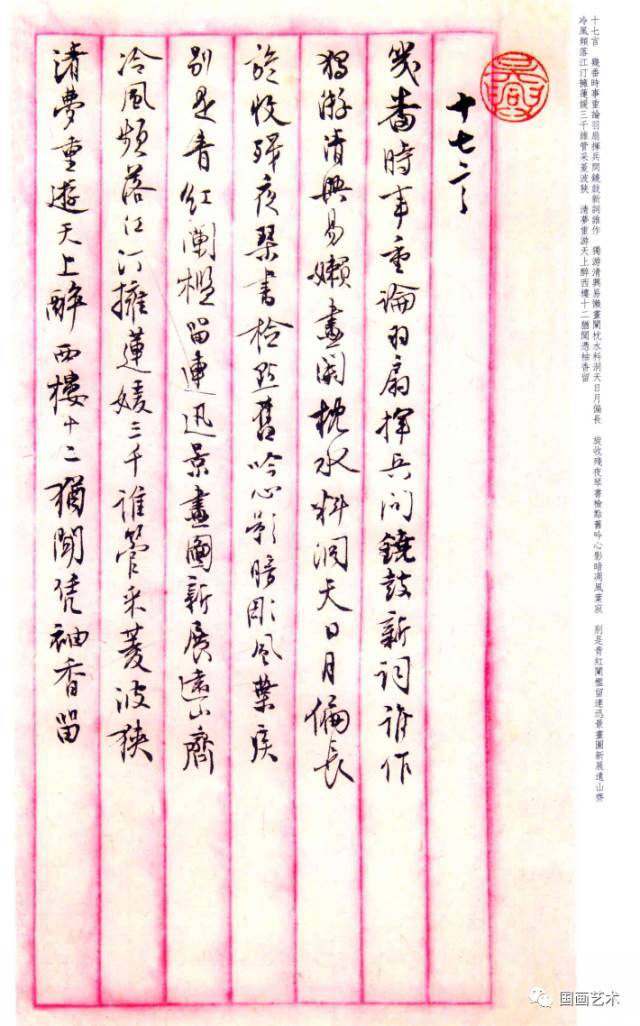 十七言 幾番時事重論羽扇揮兵問鐃鼓新詞誰作 獨游清興易懶畫闌枕水料洞天日月偏長 旋收殘夜琴書檢點舊吟心影暗凋風葉寂 別是青紅闌檻留連迅景畫圖新展遠山齊
冷風頻落江汀擁蓮媛三千誰管采菱波狹 清夢重游天上醉西樓十二猶聞憑袖香留
十七言
幾番時事重論羽扇揮兵问鐃鼓新詞誰作
獨游清興易嬾畫闌枕水料洞天日月偏長
旋收殘夜琴書檢點舊吟心影暗彫風葉寂
別是青紅闌檻留連迅景畫圖新展遠山齊
冷風頻落江汀擁蓮媛三千誰管采菱波狹
清夢重遊天上醉西樓十二猶聞凭袖香留
国画艺术